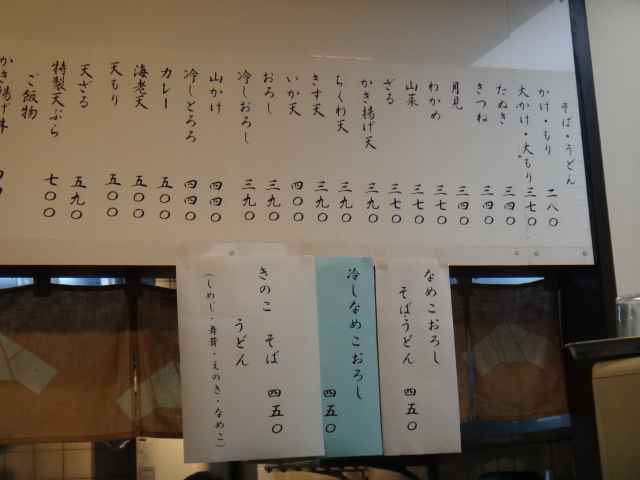 そば・うどん
かけ・もり 二八〇
大かけ・大もり 三七〇
たぬき 三四〇
きつね 三四〇
月見 三四〇
わかめ 三七〇
山菜 三七〇
ざる 三七〇
かき揚げ天 三九〇
ちくわ天 三九〇
きす天 三九〇
いか天 四〇〇
おろし 三九〇
冷しおろし 三九〇
山かけ 四四〇
冷しとろろ 四四〇
カレー 五〇〇
海老天 五〇〇
天もり 五〇〇
天ざる 五九〇
特製天ぷら 七〇〇
ご飯物
かき揚げ丼
なめこおろし
そばうどん 四五〇
冷しなめこおろし 四五〇
きのこ そば 四五〇
うどん
(しめじ・舞茸・えのき・なめこ)